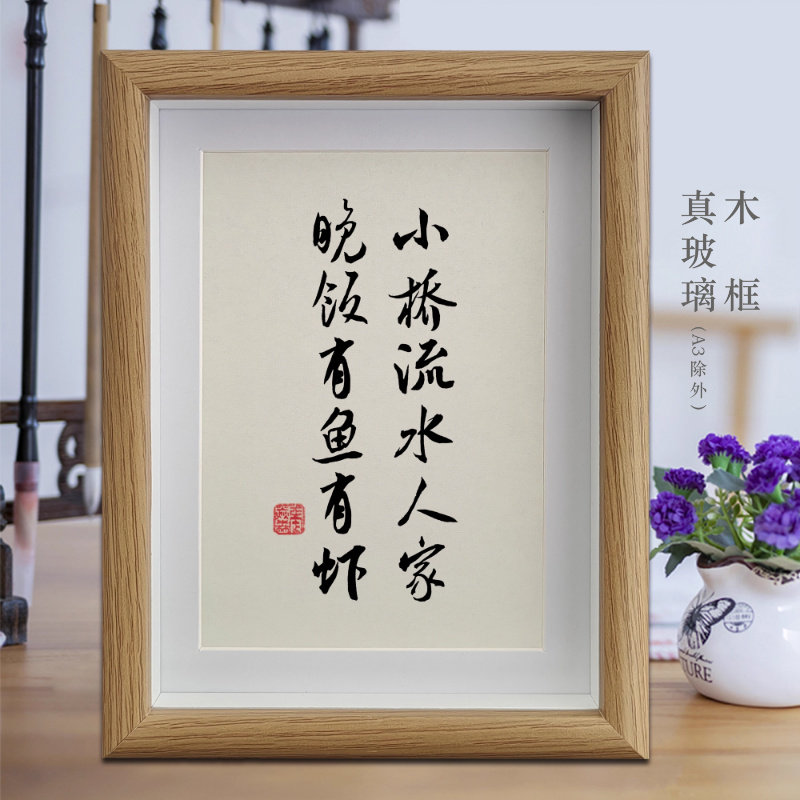 小桥流水人家
晚饭有鱼有虾
木框
真玻璃(A3除外)
TURE